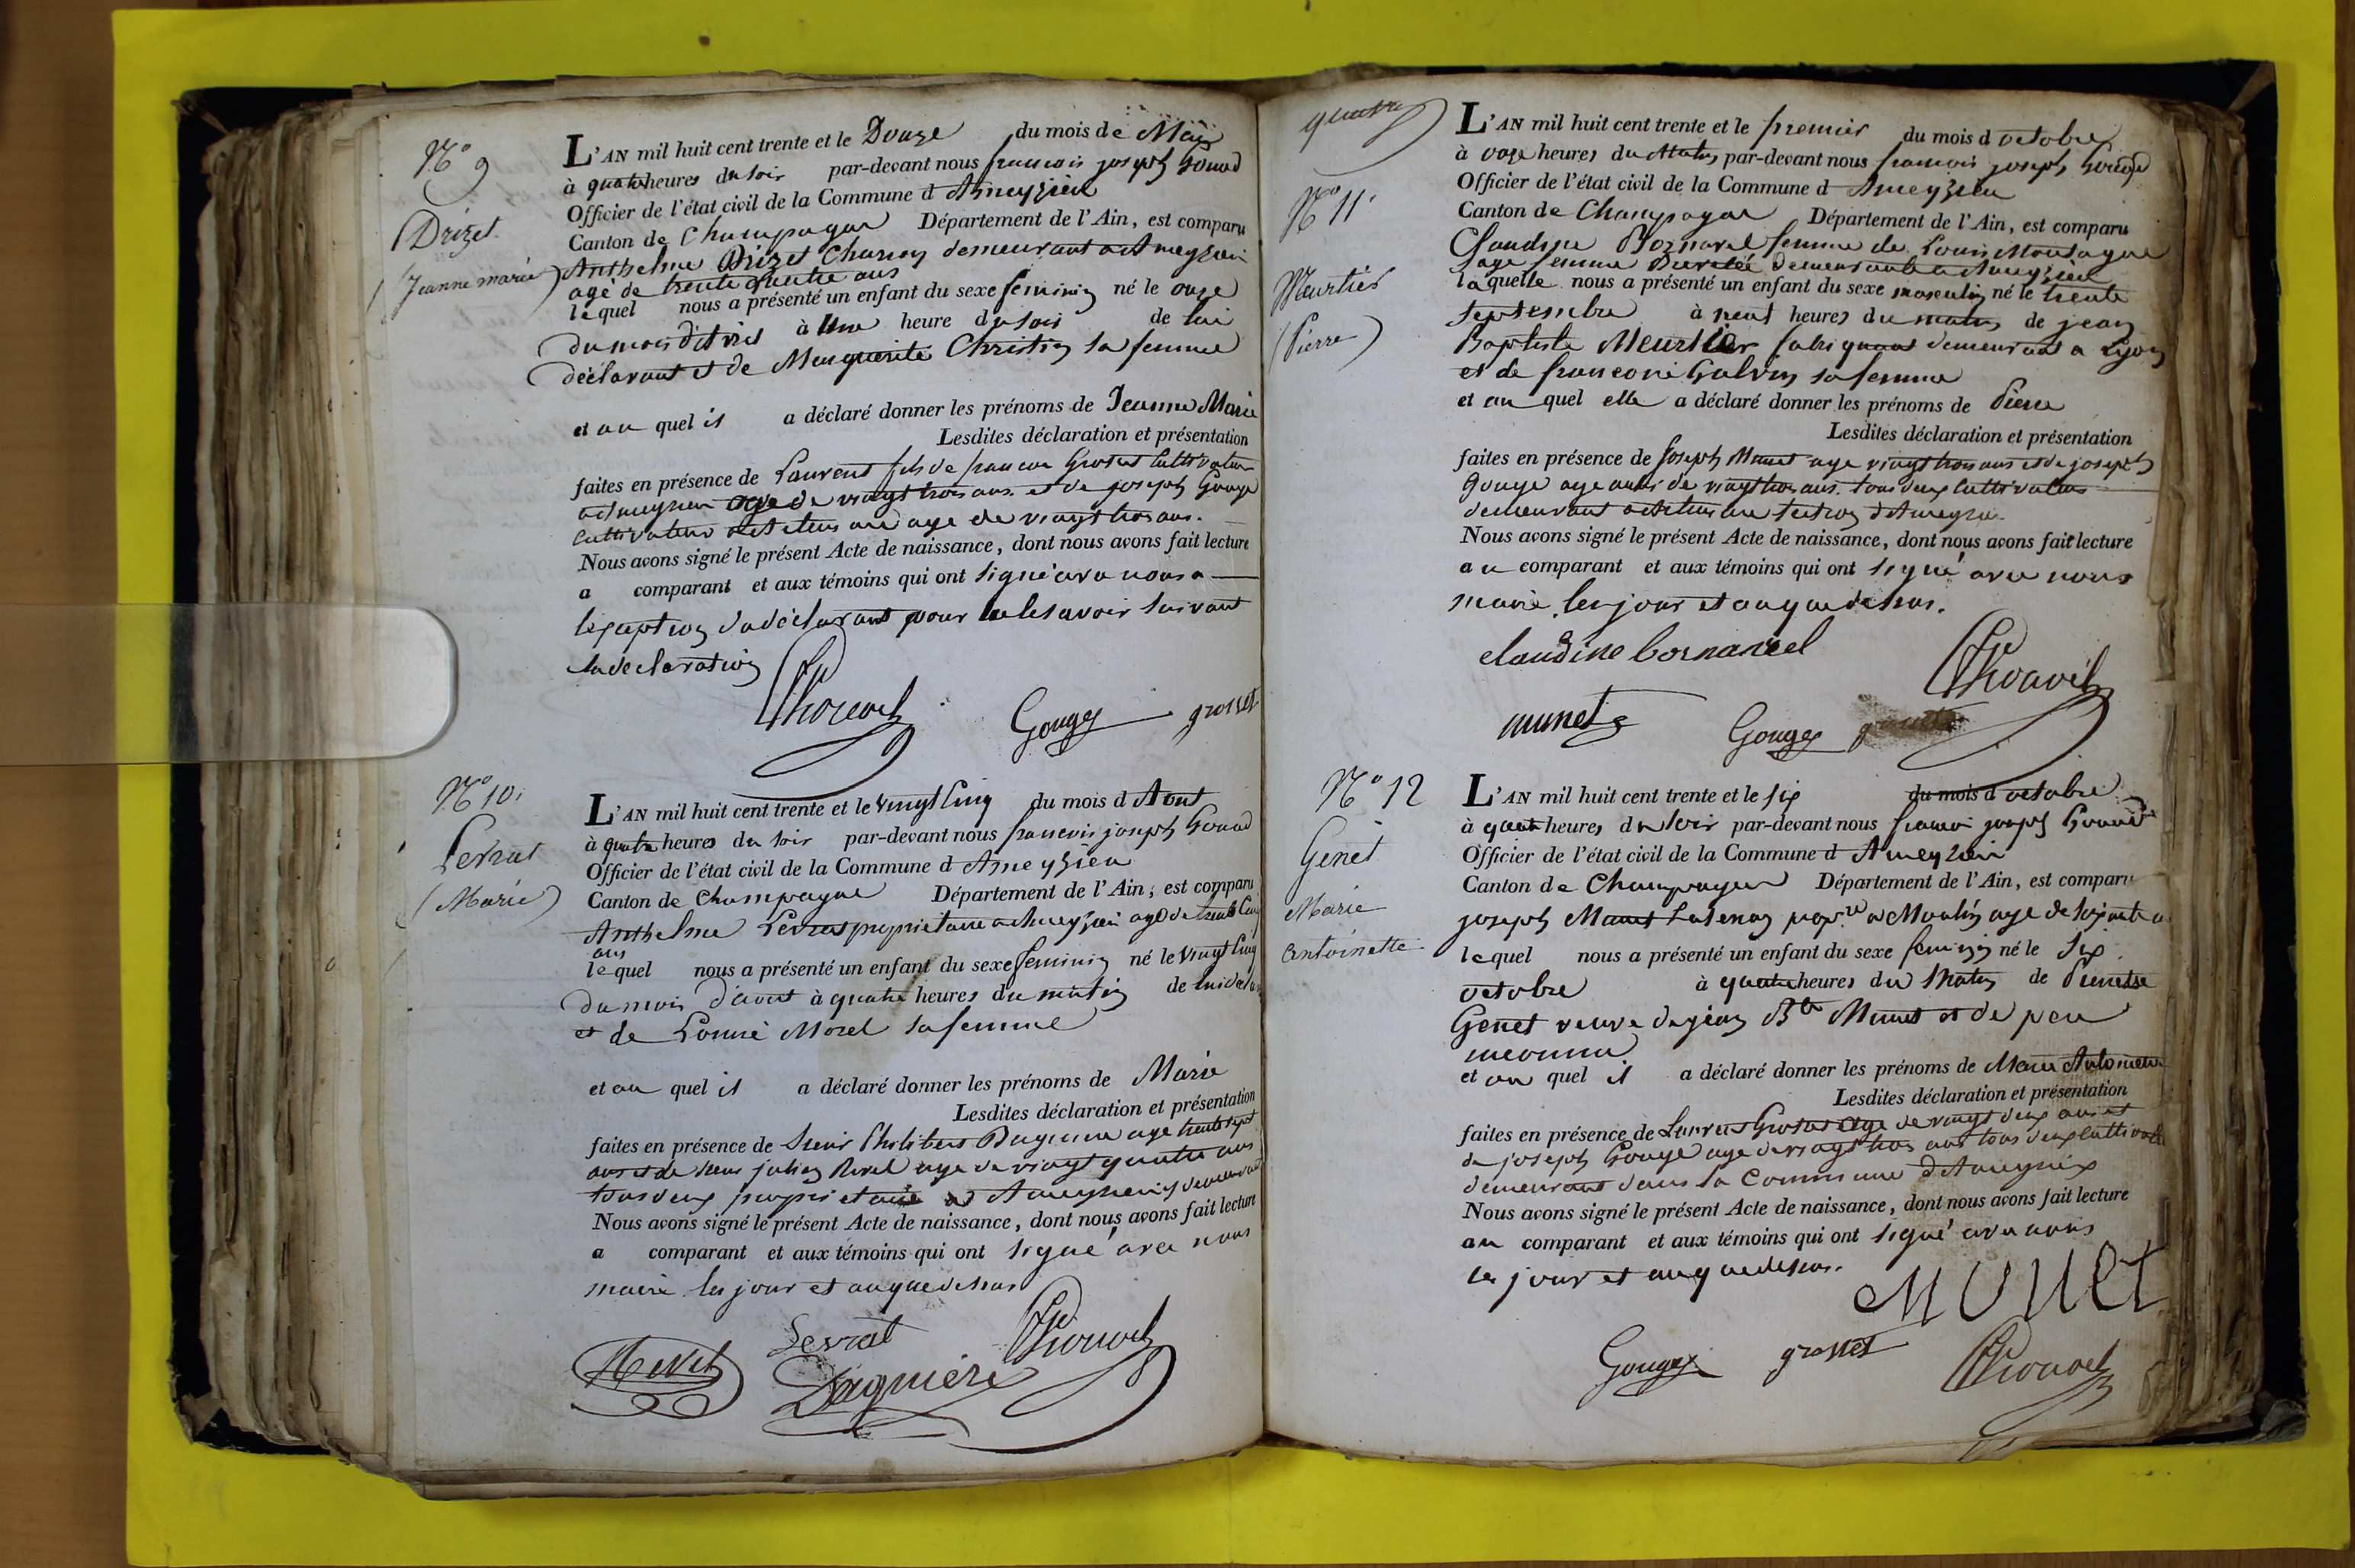 N.º 9
Drizet
(Jeanne marie)
L'AN mil huit cent trente et le Douze du mois de Mai
à quatre heures du soir par-devant nous francois joseph
Officier de l'état civil de la Commune d Ameyzieu
Canton de Champagne Département de l'Ain, est comparu
Anthelme Drizet Charon demeurant a Ameyzieu
agé de trente quatre ans
lequel nous a présenté un enfant du sexe feminin né le onze
du mois d'Avril à Une heure du soir de lui
déclarant et de Marguerite Christin sa femme
et au quel il a déclaré donner les prénoms de Jeanne Marie
Lesdites déclaration et présentation
faites en présence de Laurent fils de francois Grosset Cultivateur
a Ameyzieu age de vingt trois ans et de joseph Gouge
Cultivateur age de vingt trois ans.
Nous avons signé le présent Acte de naissance, dont nous avons fait lecture
a comparant et aux témoins qui ont signé avec nous a
lexception du déclarant pour ne le savoir suivant
sa declaration
Gouge grosset
N.º 10.
Levrat
(Marie)
L'AN mil huit cent trente et le vingt Cinq du mois d Aout
à quatre heures du soir par-devant nous francois joseph
Officier de l'état civil de la Commune d Ameyzieu
Canton de Champagne Département de l'Ain, est comparu
Anthelme Levrat proprietaire a Ameyzieu age de trente Cinq
ans
lequel nous a présenté un enfant du sexe feminin né le vingt Cinq
du mois d'aout à quatre heures du matin de lui
et de Louise Morel sa femme
et au quel il a déclaré donner les prénoms de Marie
Lesdites déclaration et présentation
faites en présence de Philibert age trente sept
ans et de julien Revel age de vingt quatre ans
tous deux proprietaire a Ameyzieu y demeurant
Nous avons signé le présent Acte de naissance, dont nous avons fait lecture
a comparant et aux témoins qui ont signé avec nous
maire les jour et an que dessus
Levrat
Revel Dagniere
quatre
N.º 11.
Meurtier
(Pierre)
L'AN mil huit cent trente et le premier du mois d octobre
à onze heures du Matin par-devant nous francois joseph
Officier de l'état civil de la Commune d Ameyzieu
Canton de Champagne Département de l'Ain, est comparu
Claudine Bornarel femme de Louis Montagne
Sage femme demeurante a Ameyzieu
laquelle nous a présenté un enfant du sexe masculin né le trente
septembre à neuf heures du matin de jean
Baptiste Meurtier fabriquant demeurant a Lyon
et de francoise Galvin sa femme
et au quel elle a déclaré donner les prénoms de Pierre
Lesdites déclaration et présentation
faites en présence de Joseph Munet age vingt trois ans et de joseph
Gouge age aussi de vingt trois ans. tous deux Cultivateurs
demeurant section d'Ameyzieu.
Nous avons signé le présent Acte de naissance, dont nous avons fait lecture
au comparant et aux témoins qui ont signé avec nous
maire, les jour et an que dessus.
claudine bornarel
munet Gouge
N.º 12
Genet
Marie
antoinette
L'AN mil huit cent trente et le six du mois d octobre
à quatre heures du soir par-devant nous francois joseph
Officier de l'état civil de la Commune d Ameyzieu
Canton de Champagne Département de l'Ain, est comparu
joseph Munet age de soixante
lequel nous a présenté un enfant du sexe feminin né le Six
octobre à quatre heures du Matin de Pierrette
Genet veuve de jean B.te Munet et de pere
inconnu
et au quel il a déclaré donner les prénoms de Marie Antoinette
Lesdites déclaration et présentation
faites en présence de Laurent Grosset age de vingt deux ans et
de joseph Gouge age de vingt trois ans tous deux Cultivateurs
demeurant dans la Commune d'Ameyzieu
Nous avons signé le présent Acte de naissance, dont nous avons fait lecture
au comparant et aux témoins qui ont signé avec nous
les jour et an que dessus.
MUNET
Gouge grosset